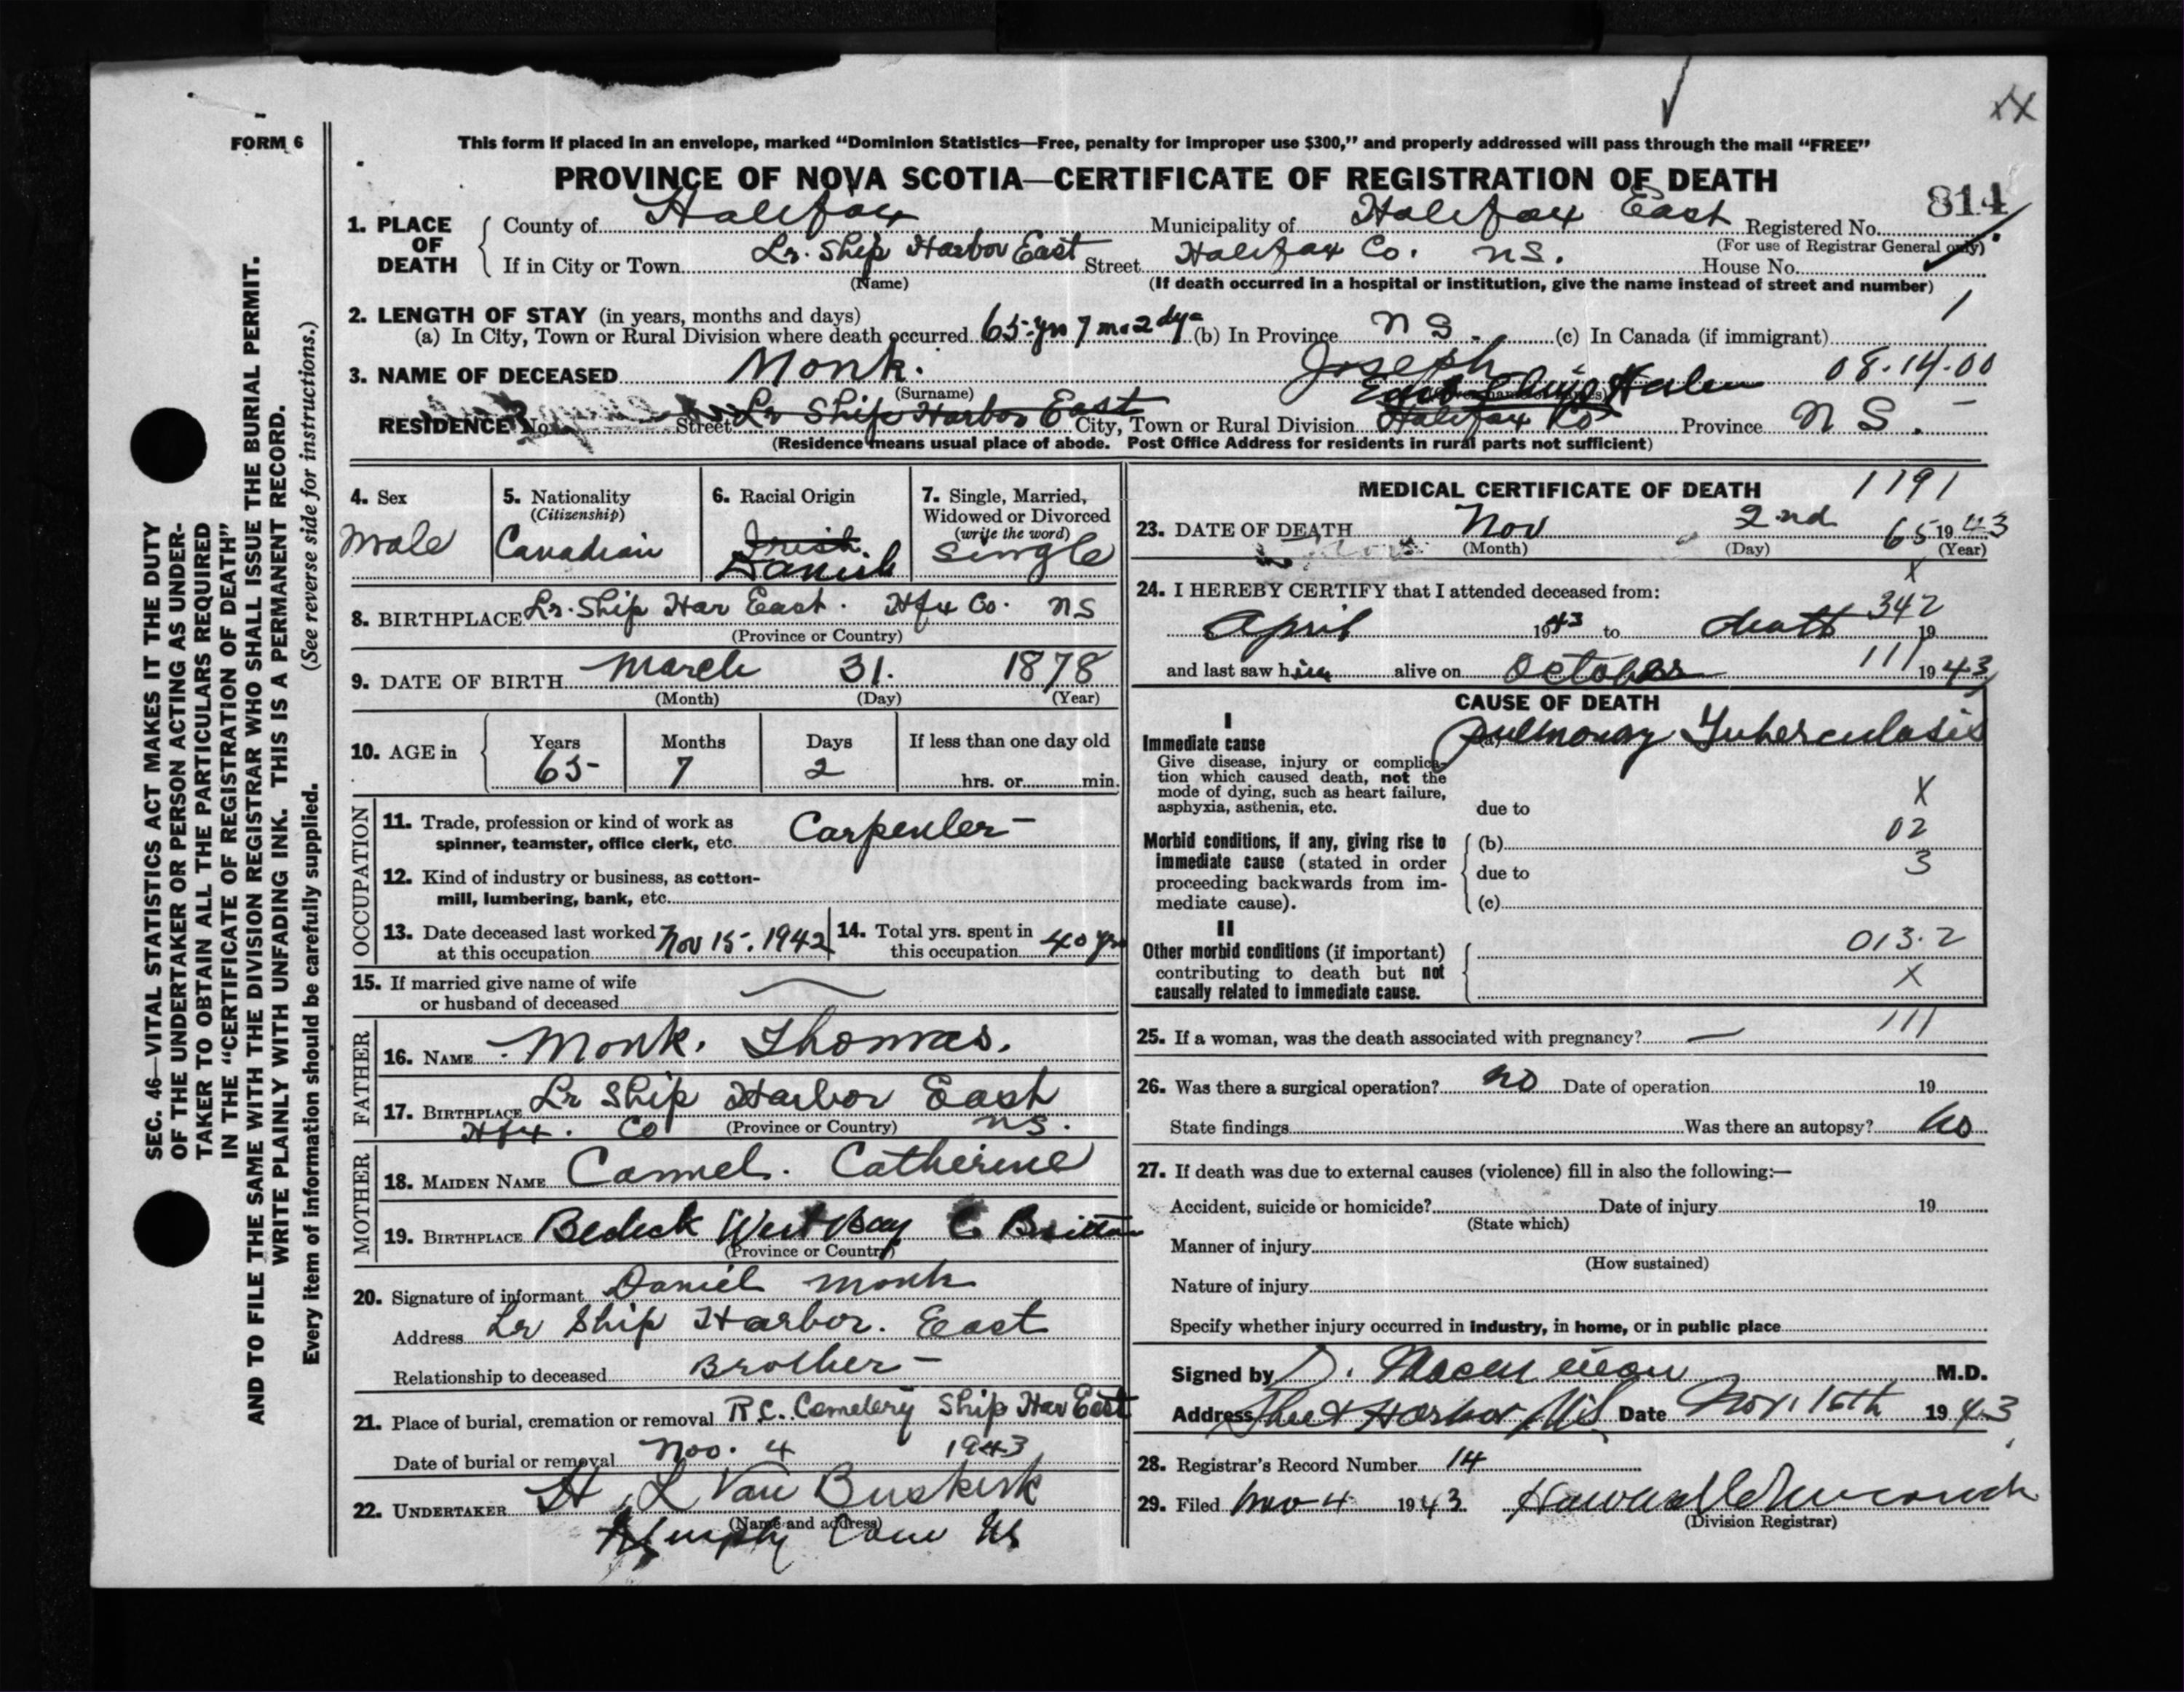 FORM 6
This form if placed in an envelope, marked “Dominion Statistics—Free, penalty for improper use $300,” and properly addressed will pass through the mail “FREE”
PROVINCE OF NOVA SCOTIA—CERTIFICATE OF REGISTRATION OF DEATH
814
1. PLACE OF DEATH County of Halifax Municipality of Halifax East Registered No.
(For use of Registrar General only)
If in City or Town Lr. Ship Harbor East Street Halifax Co. NS. House No.
(Name) (If death occurred in a hospital or institution, give the name instead of street and number)
2. LENGTH OF STAY (in years, months and days) 1
(a) In City, Town or Rural Division where death occurred 65 yrs 7 mo 2 dys (b) In Province NS. (c) In Canada (if immigrant)
3. NAME OF DECEASED Monk. Joseph 08.14.00
(Surname)
RESIDENCE No. Street Lr Ship Harbor East City, Town or Rural Division Halifax Co Province NS.
(Residence means usual place of abode. Post Office Address for residents in rural parts not sufficient)
4. Sex
Male
5. Nationality
(Citizenship)
Canadian
6. Racial Origin
Irish
Danish
7. Single, Married,
Widowed or Divorced
(write the word)
Single
8. BIRTHPLACE Lr. Ship Har East. Hfx Co. NS
(Province or Country)
9. DATE OF BIRTH March 31. 1878
(Month) (Day) (Year)
10. AGE in Years Months Days If less than one day old
65 7 2 hrs. or min.
OCCUPATION
11. Trade, profession or kind of work as
spinner, teamster, office clerk, etc. Carpenter
12. Kind of industry or business, as cotton-
mill, lumbering, bank, etc.
13. Date deceased last worked
at this occupation Nov 15. 1942
14. Total yrs. spent in
this occupation 40 yrs
15. If married give name of wife
or husband of deceased
FATHER
16. NAME Monk. Thomas.
17. BIRTHPLACE Lr Ship Harbor East
Hfx. Co (Province or Country) NS.
MOTHER
18. MAIDEN NAME Catherine
19. BIRTHPLACE Bedeck West Bay C Britton
(Province or Country)
20. Signature of informant Daniel Monk
Address Lr Ship Harbor. East
Relationship to deceased Brother
21. Place of burial, cremation or removal R.C. Cemetery Ship Har East
Date of burial or removal Nov. 4 1943
22. UNDERTAKER H. L Van Buskirk
(Name and address)
NS
MEDICAL CERTIFICATE OF DEATH 1191
23. DATE OF DEATH Nov 2nd 65 1943
(Month) (Day) (Year)
X
24. I HEREBY CERTIFY that I attended deceased from:
342
April 1943 to death 19
and last saw him alive on October 111 1943
CAUSE OF DEATH
I
Immediate cause (a) Pulmonary Tuberculosis
Give disease, injury or complica-
tion which caused death, not the
mode of dying, such as heart failure,
asphyxia, asthenia, etc. due to X
02
Morbid conditions, if any, giving rise to (b)
immediate cause (stated in order due to 3
proceeding backwards from im-
mediate cause). (c)
II
Other morbid conditions (if important) 013.2
contributing to death but not X
causally related to immediate cause.
111
25. If a woman, was the death associated with pregnancy? —
26. Was there a surgical operation? no Date of operation 19
State findings Was there an autopsy? No
27. If death was due to external causes (violence) fill in also the following:—
Accident, suicide or homicide? Date of injury 19
(State which)
Manner of injury
(How sustained)
Nature of injury
Specify whether injury occurred in industry, in home, or in public place
Signed by M.D.
Address Sheet Harbor N.S. Date Nov. 15th 1943
28. Registrar's Record Number 14
29. Filed Nov 4 1943
(Division Registrar)
SEC. 46—VITAL STATISTICS ACT MAKES IT THE DUTY
OF THE UNDERTAKER OR PERSON ACTING AS UNDER-
TAKER TO OBTAIN ALL THE PARTICULARS REQUIRED
IN THE “CERTIFICATE OF REGISTRATION OF DEATH”
AND TO FILE THE SAME WITH THE DIVISION REGISTRAR WHO SHALL ISSUE THE BURIAL PERMIT.
WRITE PLAINLY WITH UNFADING INK. THIS IS A PERMANENT RECORD.
Every item of information should be carefully supplied. (See reverse side for instructions.)